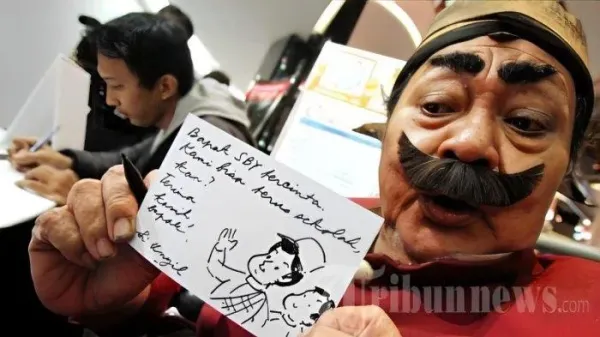 Bapak SBY tercinta
Kami bisa terus sekolah,
kan?
Terima
kasih
bapak!
Si Ungil
Tribunnews.com